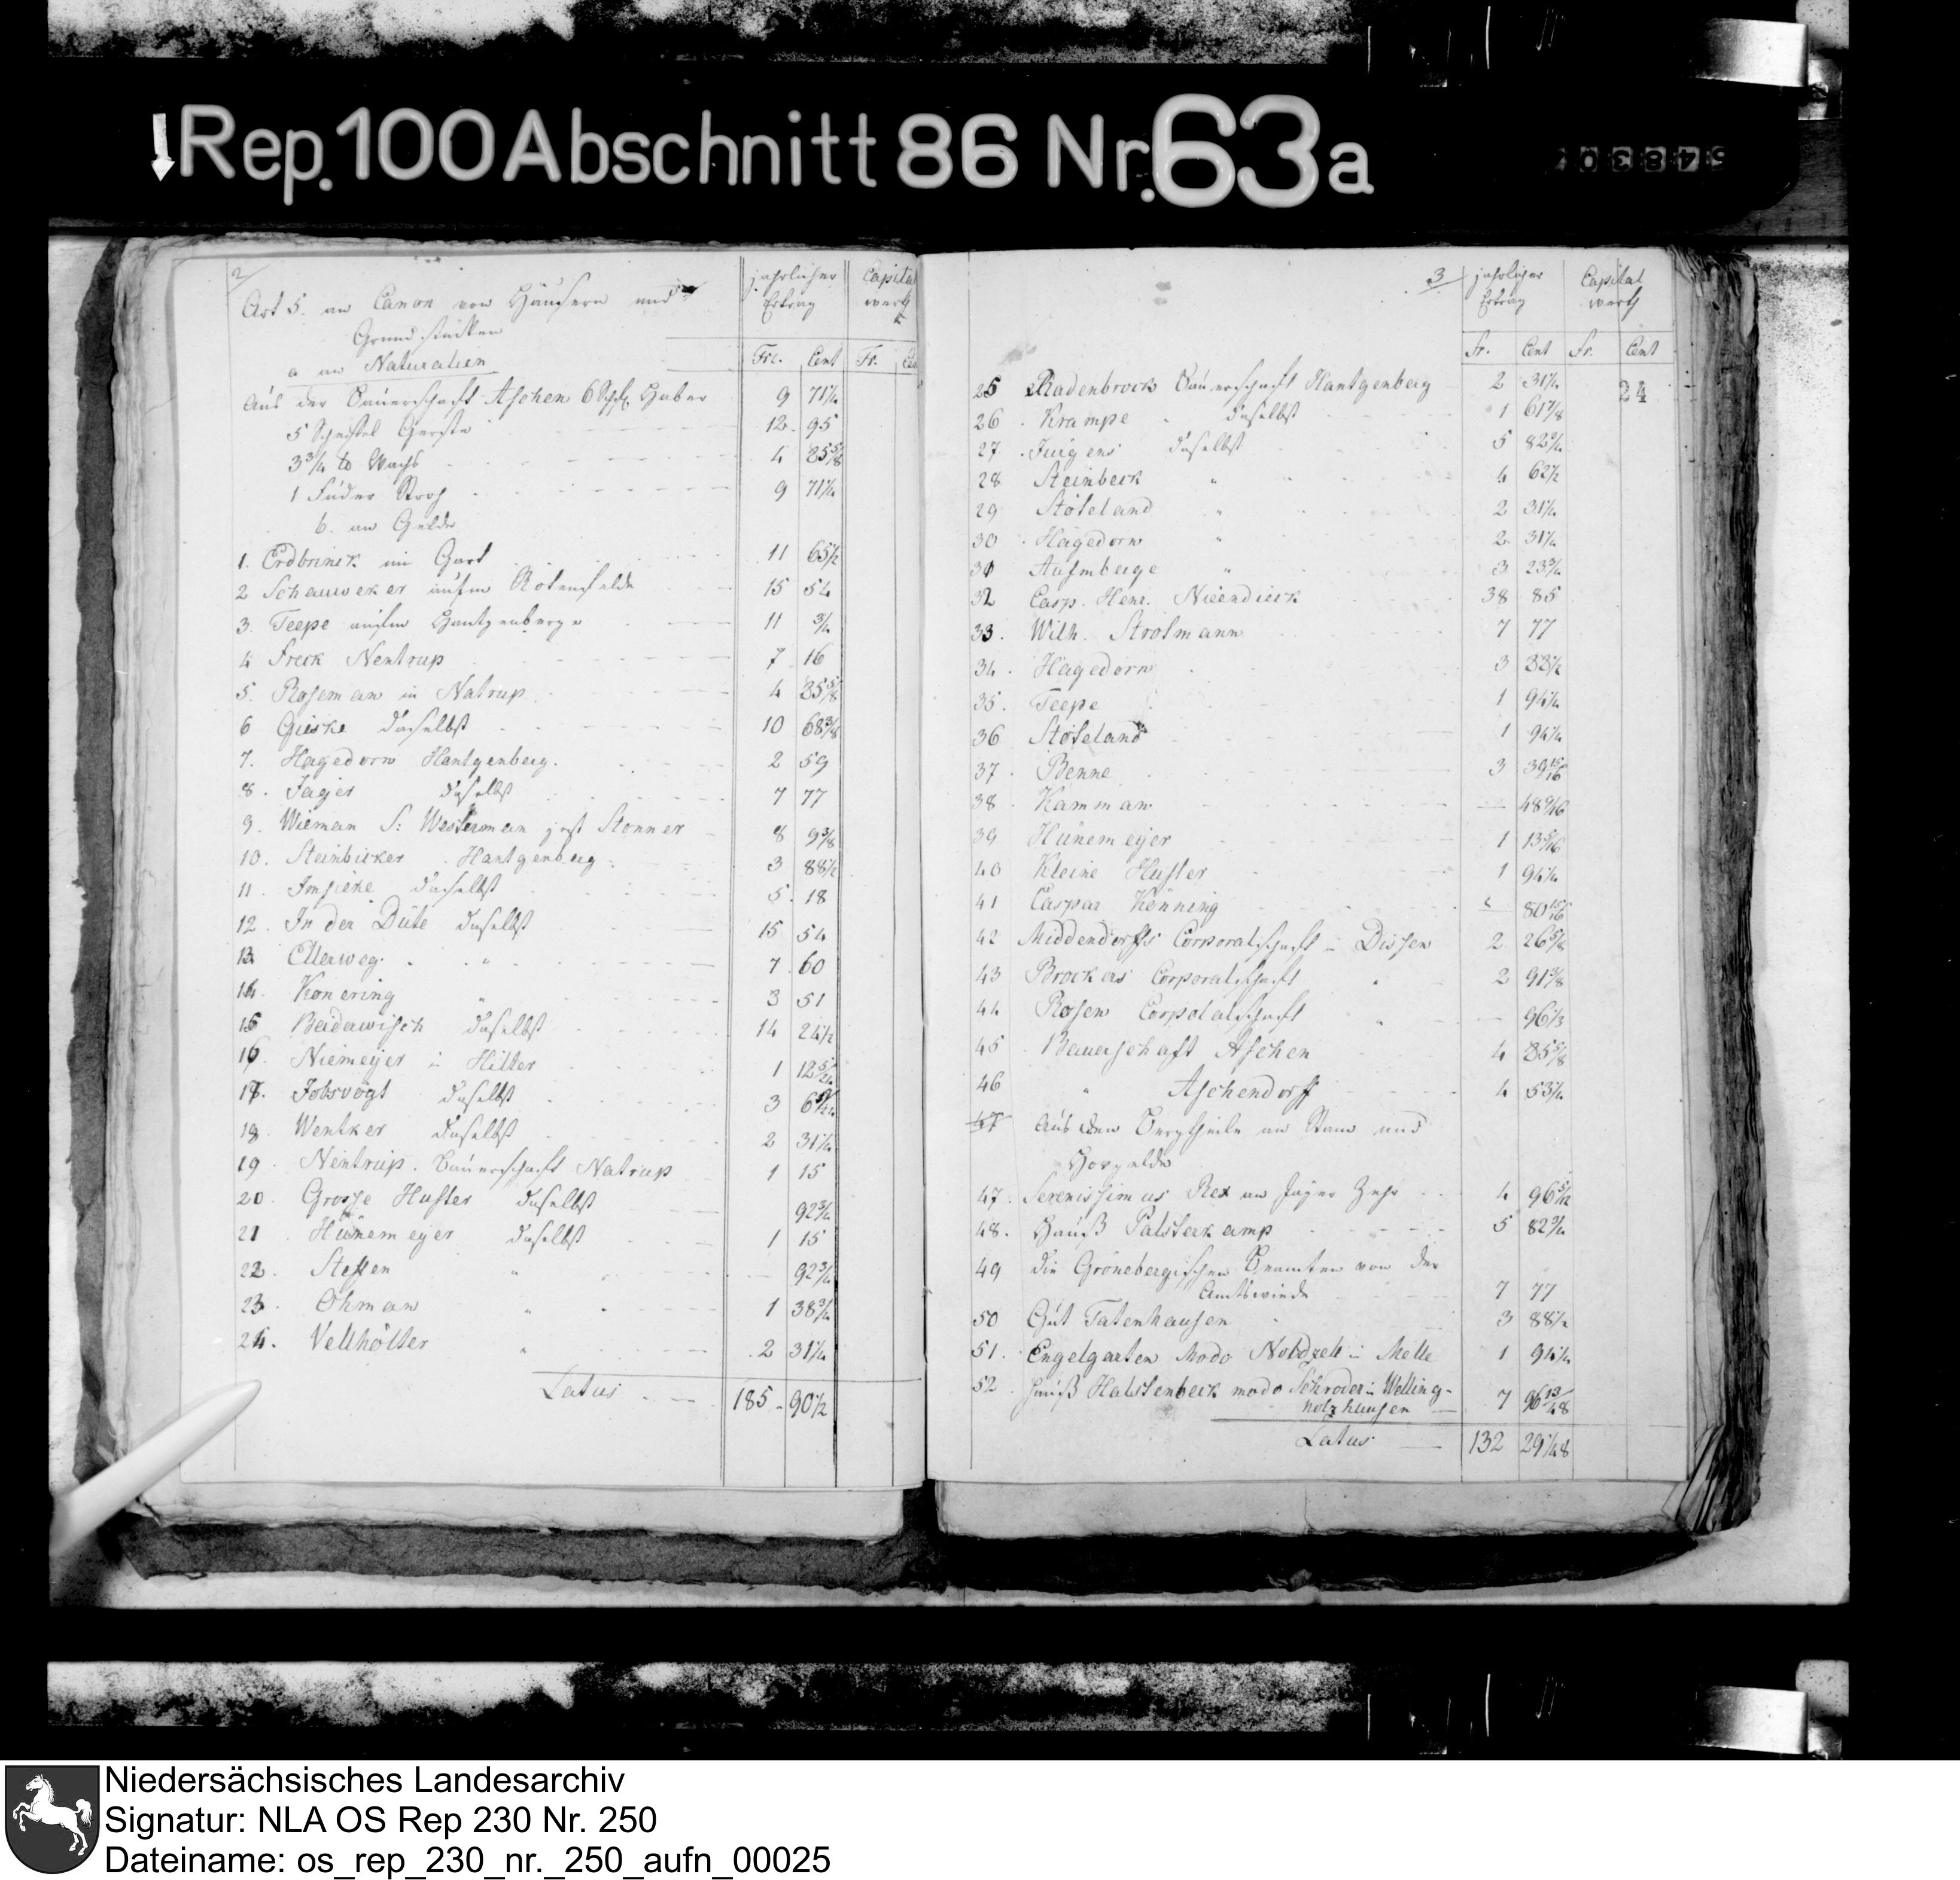 Rep. 100 Abschnitt 86 Nr. 63a
2
jahrlicher Ertrag
Capital werth
Art 5. an Canon von Häusern und
Grundstücken
a an Naturalien
Frc. Cent Fr.
Aus der Bauerschaft Aschen 6 Schfl. Haber 9 71 1/4
5 Scheffel Gerste 12 95
3 3/4 lb Wachs 4 85 5/8
1 Fuder Stroh 9 71 1/4
b. an Gelde
1. Erdbrinck im Gart 11 65 1/2
2 Schauweker aufm Rotenfelde 15 54
3. Teepe aufm Hantgenberge 11 3/4
4 Freck Nentrup 7 16
5. Roseman in Natrup 4 85 5/8
6 Gieske daselbst 10 68 3/8
7. Hagedorn Hantgenberg. 2 59
8. Jager daselbst 7 77
9. Wieman S: Westerman jost Stonner 8 9 3/8
10. Steinbicker Hantgenberg 3 88 1/2
11. Imsieke daselbst 5 18
12. In der Düte daselbst 15 54
13 Ellerweg. " 7 60
14. Konering " 3 51
15 Beidawisch daselbst 14 24 1/2
16. Niemeyer in Hilter 1 12 5/24
17. Jobsvogt daselbst 3
18. Wentker daselbst 2 31 1/4
19. Nentrup. Bauerschaft Natrup 1 15
20. Grosse Husler daselbst 92 3/4
21 Hünemeyer daselbst 1 15
22. Steffen " — 92 3/4
23. Ohman " 1 38 3/4
24. Vellhölter " 2 31 1/4
Latus 185 90 1/2
3
jahrlicher Ertrag
Capital werth
Fr. Cent Fr. Cent
25 Radenbrock Bauerschaft Hantgenberg 2 31 1/4
24
26. Krampe daselbst 1 61 7/8
27. Jurgens daselbst 5 82 3/4
28 Steinbeck " 4 62 1/2
29 Stöteland " 2 31 1/4
30. Hagedorn " 2 31 1/4
31 Aufmberge " 3 23 3/4
32 Casp. Henr. Nieendieck 38 85
33. Wilh. Strotmann 7 77
34. Hagedorn 3 88 1/2
35. Teepe 1 94 1/4
36 Stöteland 1 94 1/4
37. Benne 3 39 15/16
38. Kamman — 48 9/16
39 Hünemeyer 1 13 5/16
40 Kleine Husler 1 94 1/4
41 Caspar Könning — 80 15/16
42 Middendorffs Corporalschaft in Dissen 2 26 5/8
43 Brockers Corporalschaft " 2 91 3/8
44 Rosen Corpolalschaft " — 96 1/3
45. Bauerschaft Aschen 4 85 5/8
46 " Aschendorff 4 53 1/4
47 Aus dem Bergtheile an Stam und
47. Serenissimus Rex an Jäger 4 96 5/12
48. Hauß Palsterkamp 5 82 3/4
49 die Grönebergischen Beamten von der
Amtswiede 7 77
50 Gut Tatenhausen 3 88 1/2
51. Engelgarten Modo Noldzeh in Melle 1 94 1/4
52. Hauß Halstenbeck modo Schroder in Welling-
holzhausen 7 96 13/48
Latus 132 29 1/48
Niedersächsisches Landesarchiv
Signatur: NLA OS Rep 230 Nr. 250
Dateiname: os_rep_230_nr._250_aufn_00025